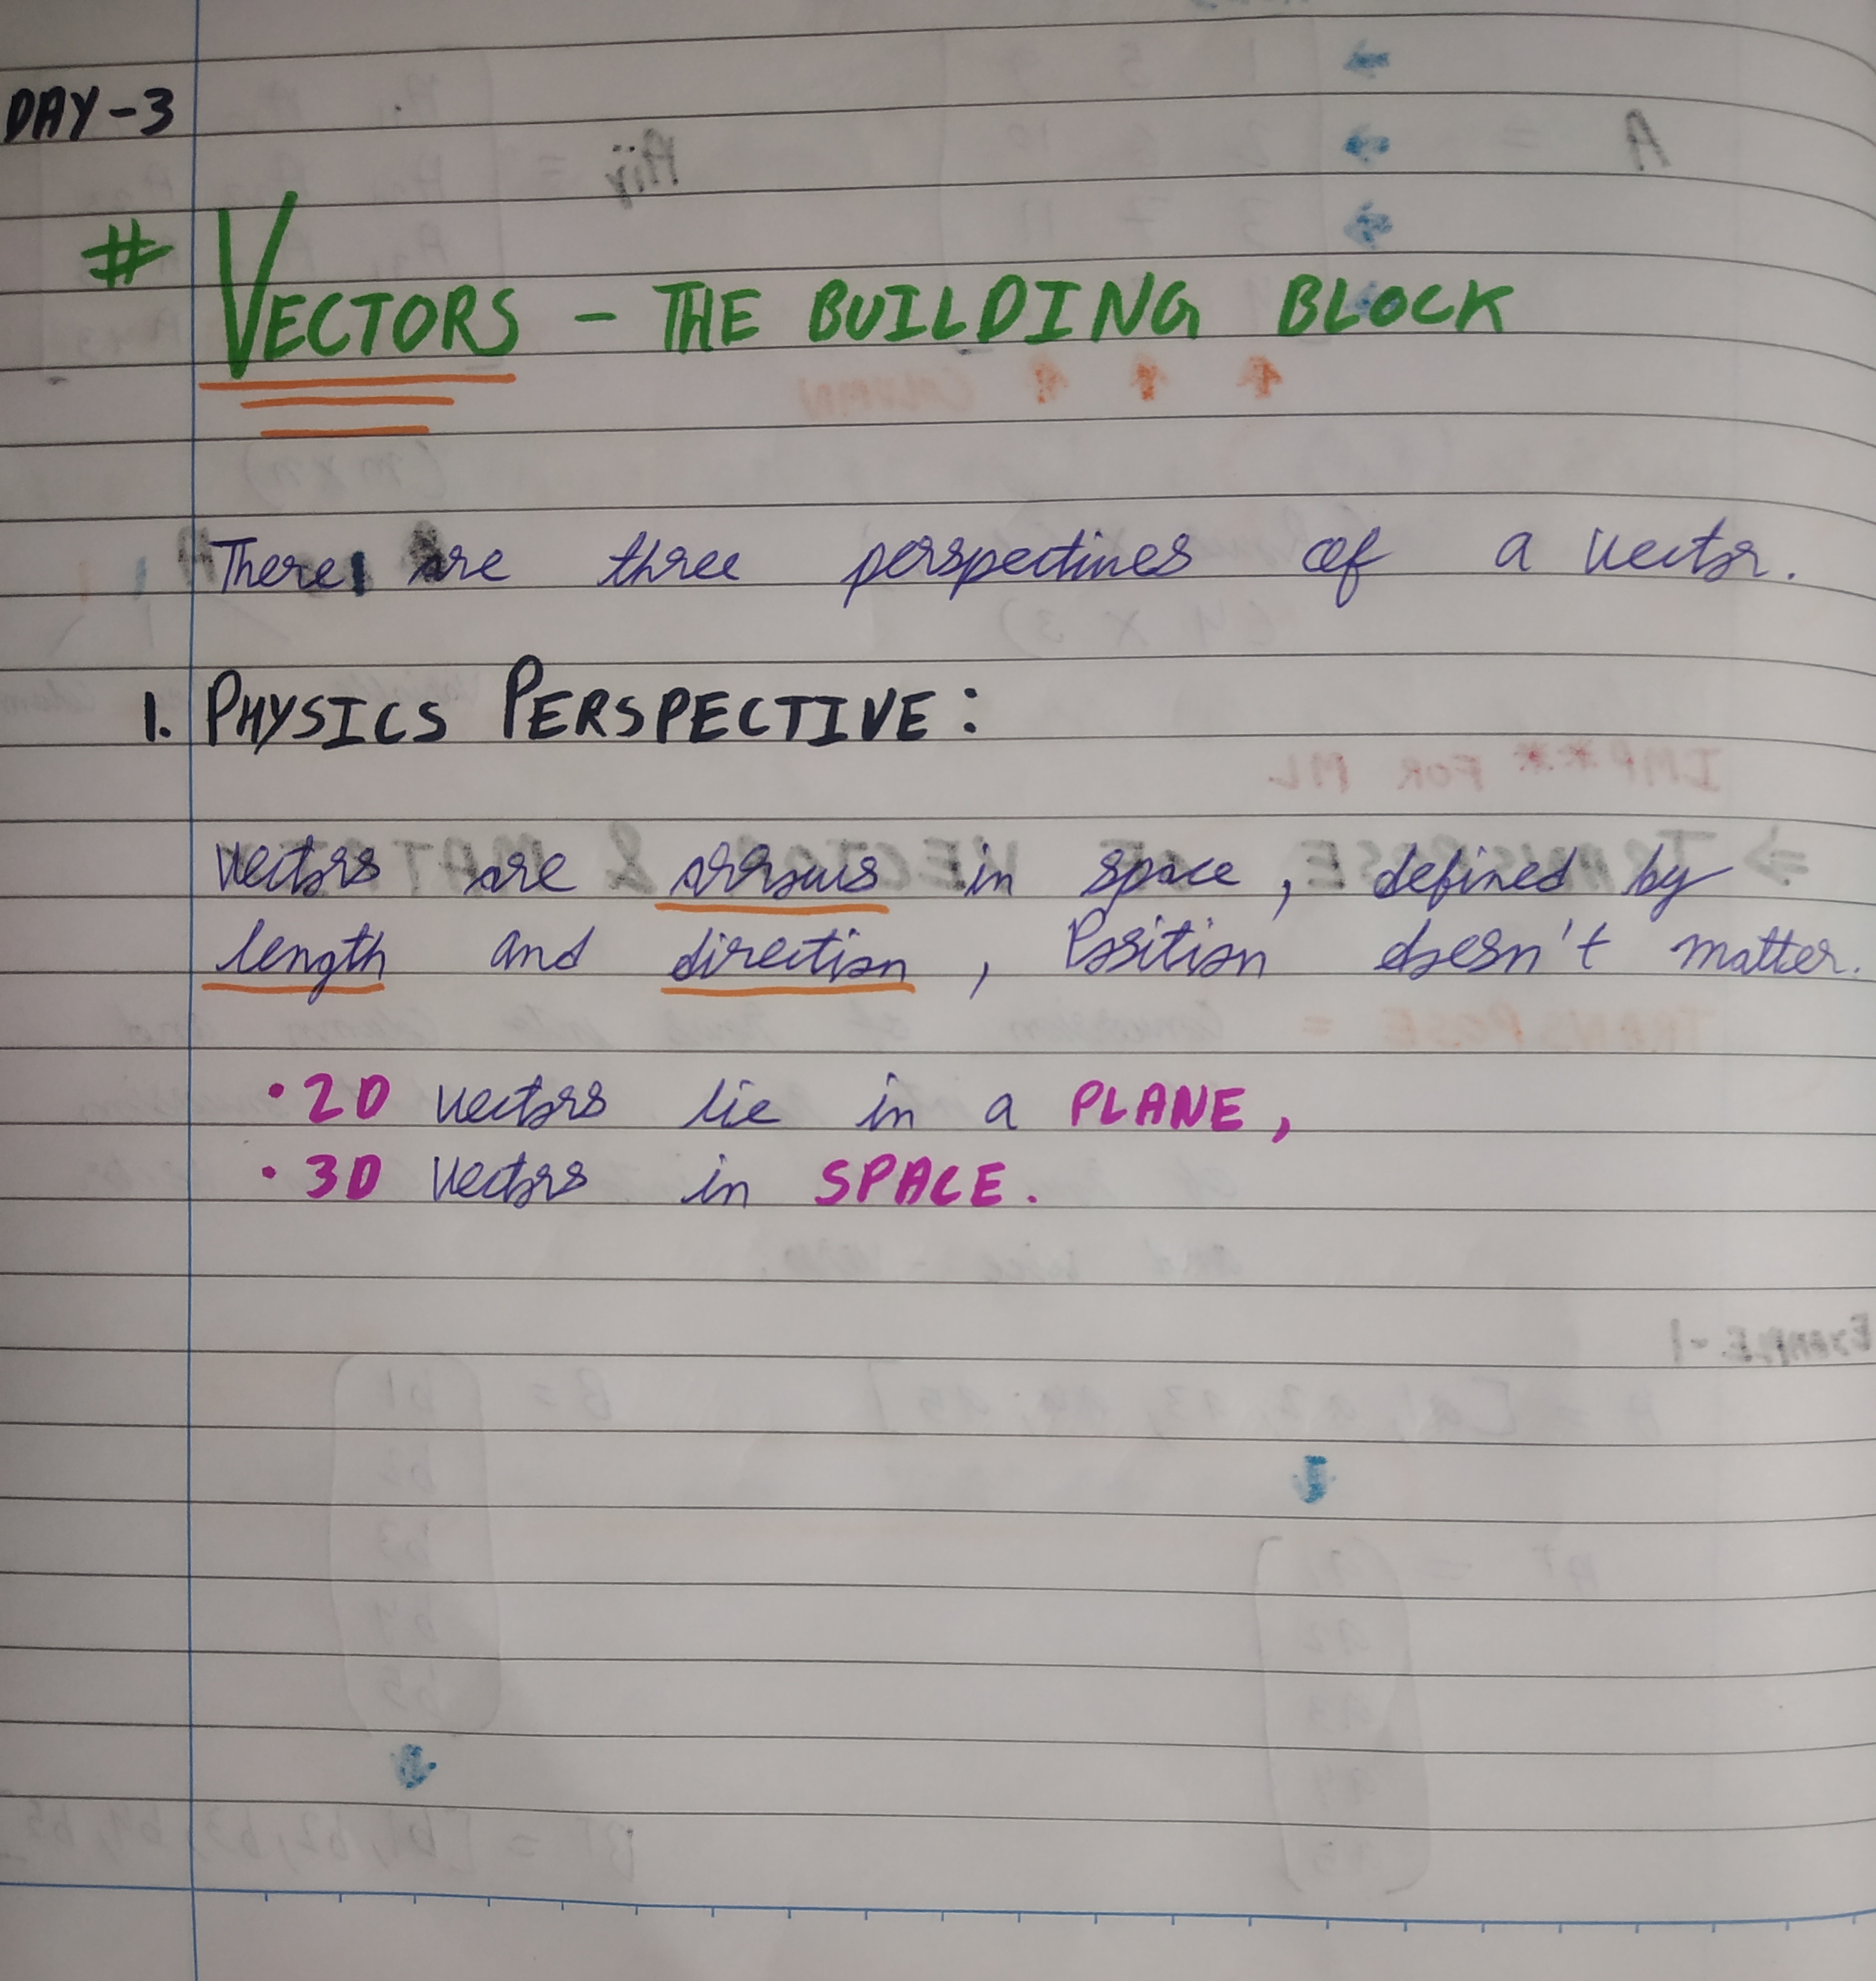 DAY-3
# VECTORS - THE BUILDING BLOCK
There are three perspectives of a vector.
1. PHYSICS PERSPECTIVE:
Vectors are arrows in space, defined by
length and direction, Position doesn't matter.
• 2D vectors lie in a PLANE,
• 3D vectors in SPACE.